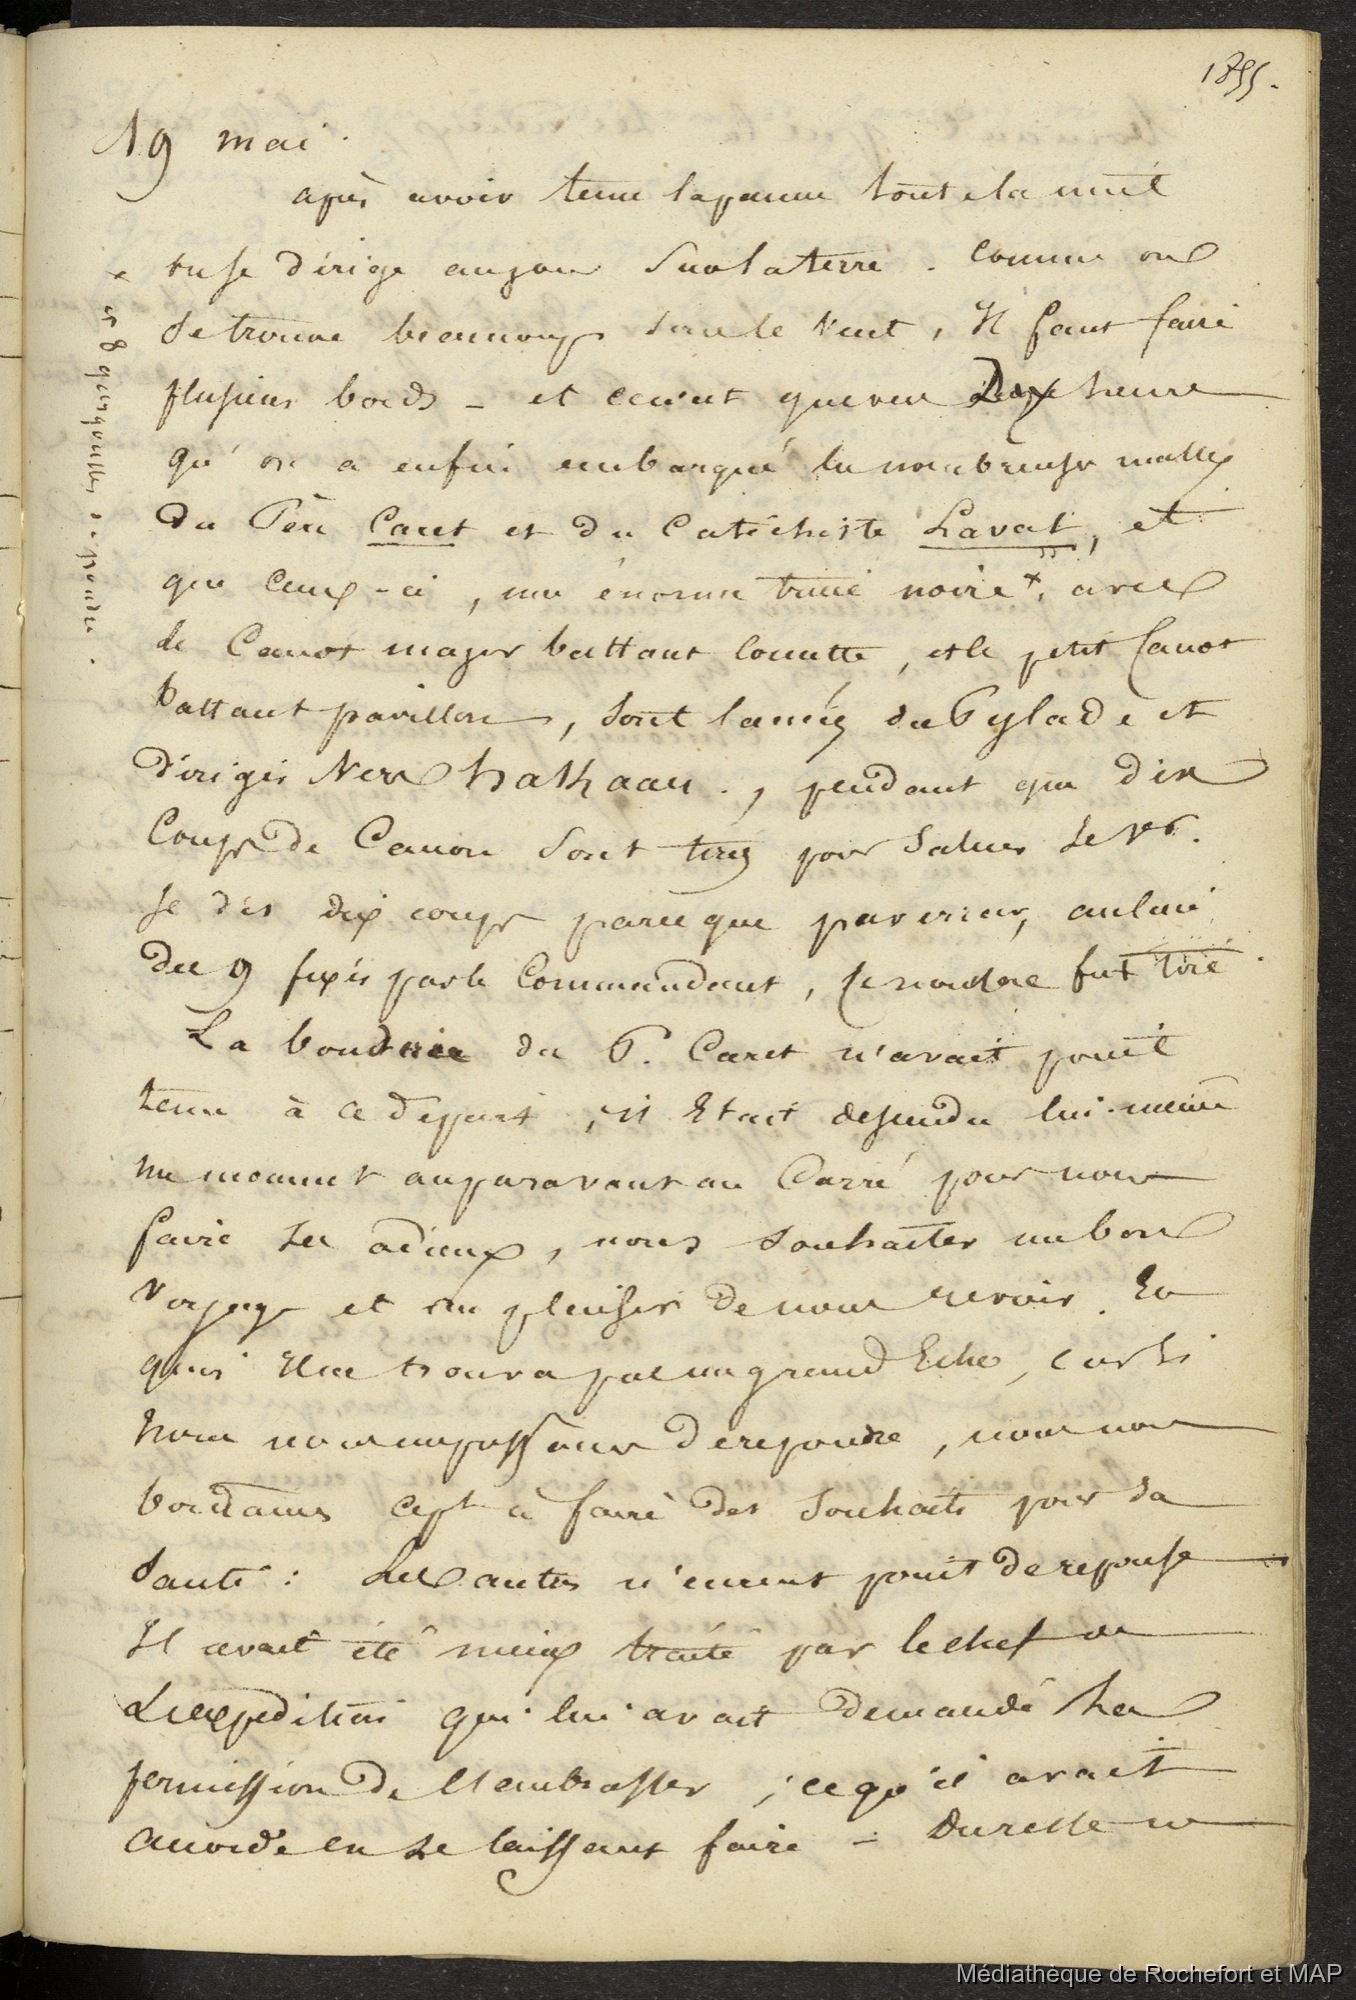 1855.
19 mai.
après avoir tenu la panne toute la nuit
on se dirige au jour sur la terre. comme on
se trouve beaucoup sous le vent, Il faut faire
plusieurs bords _ et ce n'est que vers Dix heures
qu'on a enfin embarqué les nombreuses malles
du Père Caret et du Catéchiste Laval, et
que ceux-ci, une énorme truie noire*, avec
le Canot major battant cornette, et le petit Canot
battant pavillon, sont lancés du Pylade et
dirigés vers hakaau., pendant que dix
Coups de Canon sont tirés pour saluer
Je dis dix coups parce que par erreur, au lieu
des 9 fixés par le Commandant, fut tiré.
La bouderie du P. Caret n'avait point
tenu à ce départ, il Etait descendu lui-même
un moment auparavant au Carré pour nous
faire ses adieux, nous souhaiter un bon
voyage et au plaisir de nous revoir. En
quoi Il ne trouva pas un grand Echo, car si
nous nous empressâmes de répondre, nous nous
bordâmes à faire des souhaits pour sa
santé: Les autres n'eurent point de réponse
Il avait été mieux traité par le chef de
L'expédition qui lui avait demandé la
permission de l'embrasser, ce qu'il avait
accordé en se laissant faire - Du reste
* et 8 gargousses de poudre.
Médiathèque de Rochefort et MAP